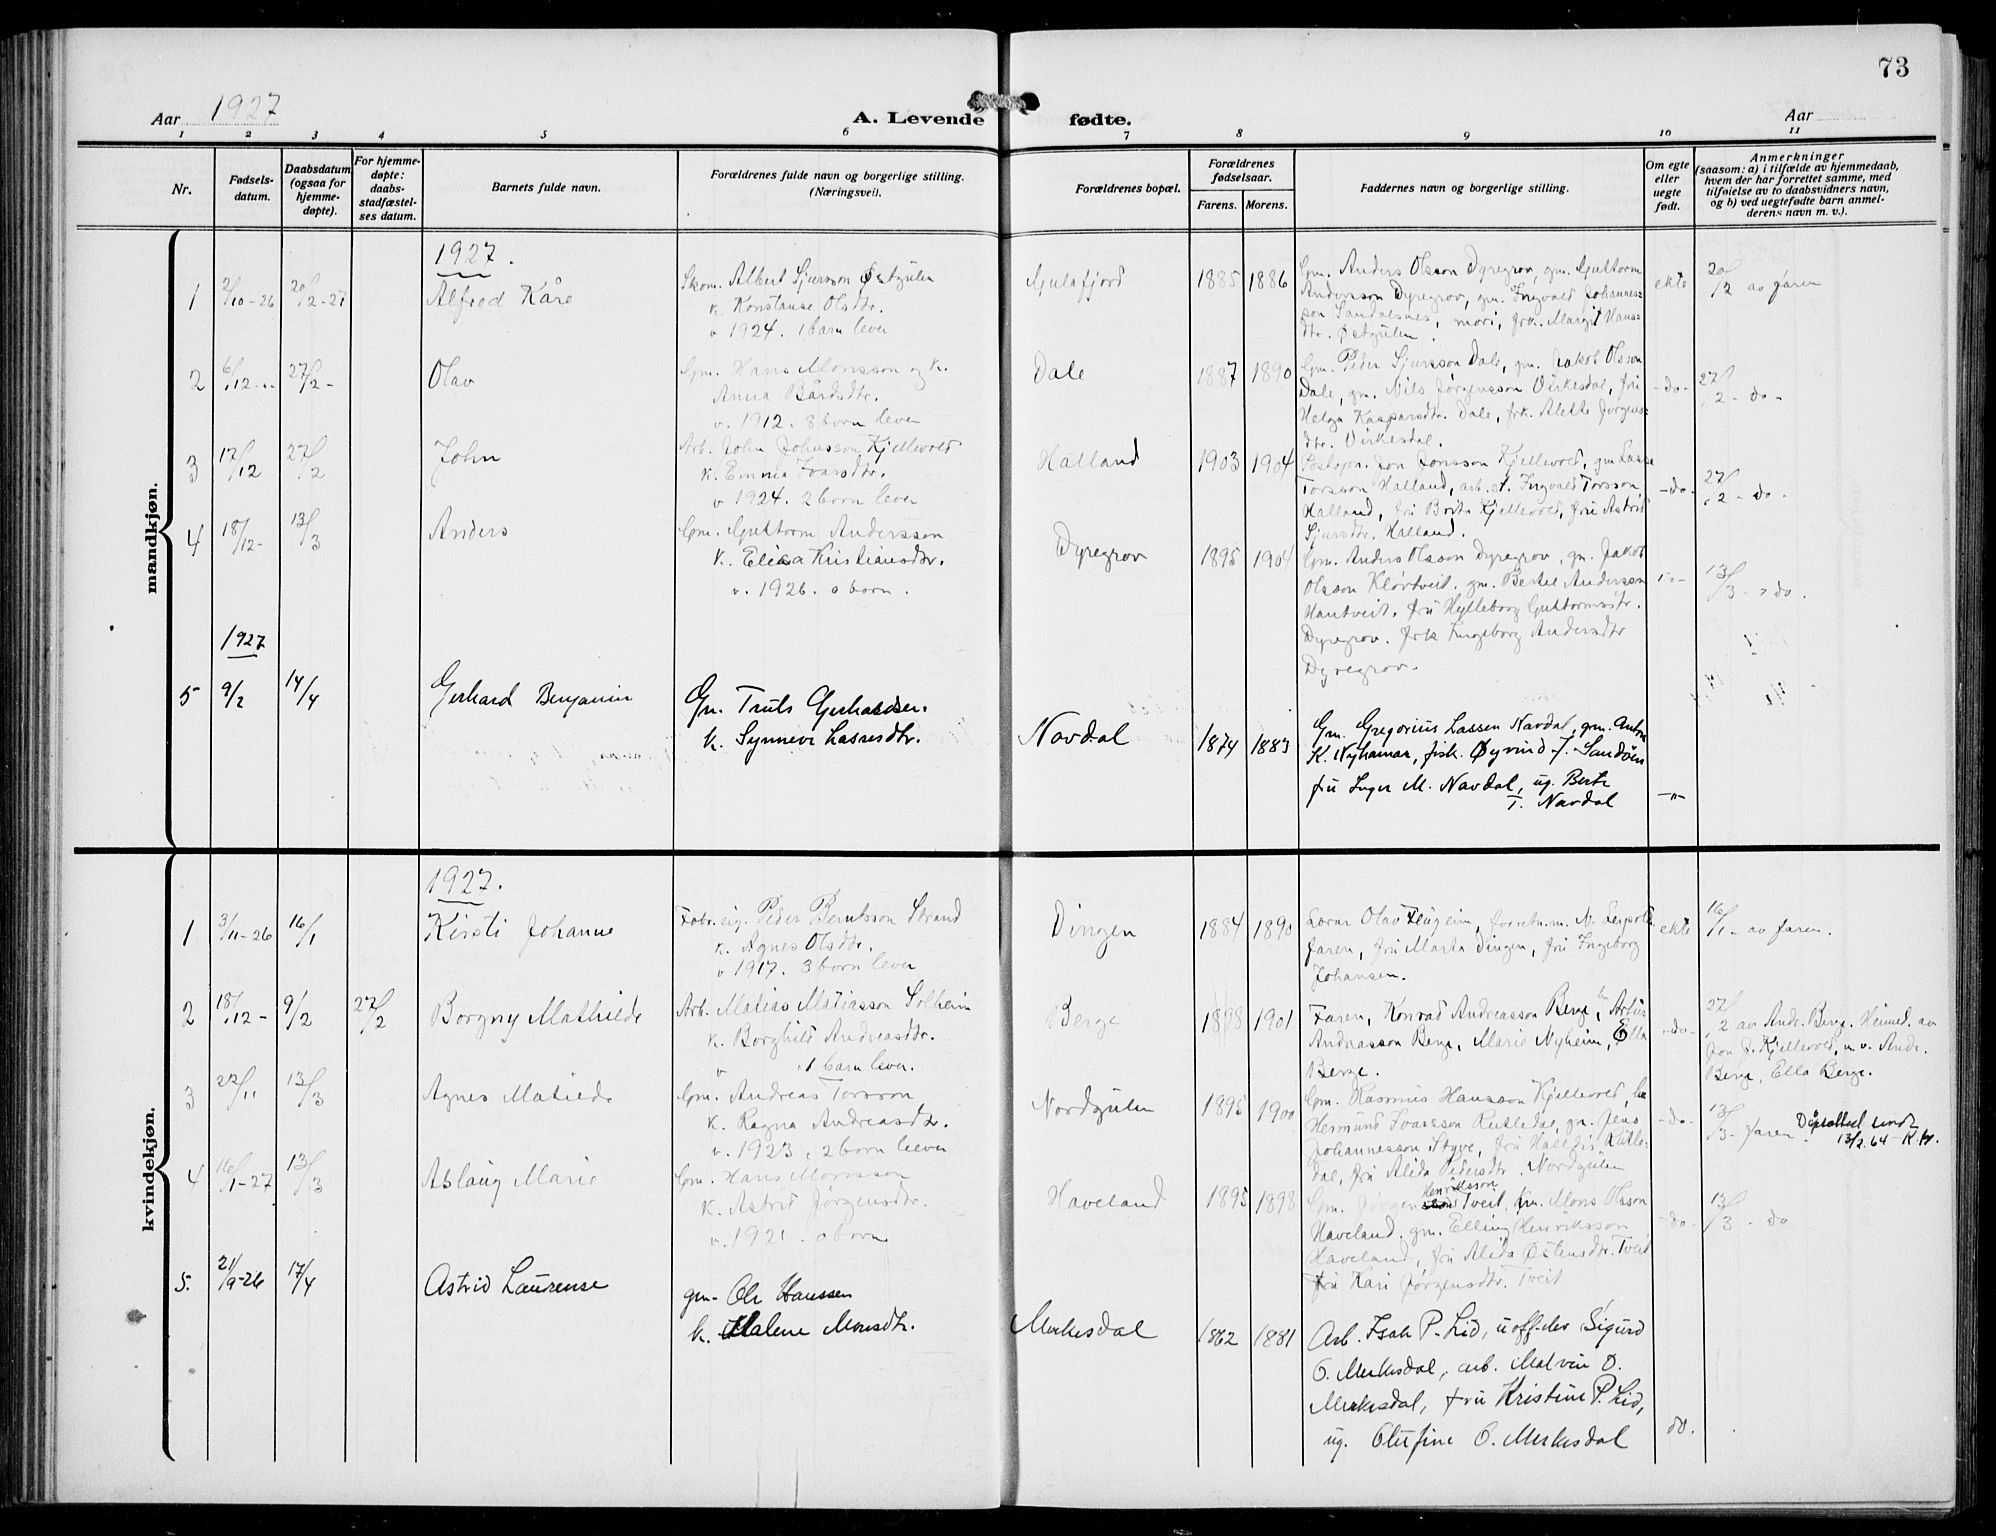 73
Aar 1927
A. Levende fødte.
Aar
1 2 3 4 5 6 7 8 9 10 11
Nr.
Fødsels-
datum.
Daabsdatum
(ogsaa for
hjemme-
døpte).
For hjemme-
døpte:
daabs-
stadfæstel-
ses datum.
Barnets fulde navn.
Forældrenes fulde navn og borgerlige stilling.
(Næringsvei).
Forældrenes bopæl.
Forældrenes
fødselsaar.
Farens. Morens.
Faddernes navn og borgerlige stilling.
Om egte
eller
uegte
født.
Anmerkninger
(saasom: a) i tilfælde av hjemmedaab,
hvem der har forrettet samme, med
tilføielse av to daabsvidners navn,
og b) ved uegtefødte barn anmel-
derens navn m. v.).
mandkjøn.
1927.
1 2/10-26 20/2-27 Alfred Kåre
Skom. Albert Sjursson Østgulen
k. Konstanse Olsdtr.
v 1924. 1 barn lever
Gulafjord 1885 1886
Gm. Anders Olsson Dyregrov, gm. Guttorm
Andersson Dyregrov, gm. Ingvald Johannes-
son Sandalsnes, mori, frk. Margit Hans-
dtr. Østgulen.
ekte 20/2 av faren
2 6/12 27/2 - Olav
Gm. Hans Monsson og k.
Anna Bårdsdtr.
v. 1912. 8 born lever
Dale 1887 1890
Gm. Peder Sjursson Dale, gm. Jakob Olsson
Dale, gm. Nils Jørgensson Virkesdal, fri
Helga Kasparsdtr. Dale, frk. Alette Jørgens-
dtr. Virkesdal.
- do - 27/2 - do -
3 12/12 27/2 John
Arb. John Johnsson Kjellevold
k. Emma Ivarsdtr.
v 1924. 2 born lever
Halland 1903 1904
Postopn. Jon Jonsson Kjellevold, gm Lasse
Torsson Halland, arb. st. Ingvald Torsson
Halland, fri Brita Kjellevold, fri Astrid
Sjursdtr. Halland.
- do - 27/2 - do.
4 18/12- 13/3 Anders
Gm. Guttorm Andersson
k. Elisa Kristiansdtr.
v. 1926. 0 born.
Dyregrov 1895 1904
Gm. Anders Olsson Dyregrov, gm. Jakob
Olsson Kløvtveit. gm. Bertel Andersson
Hantveit. frü Hylleborg Guttormsdtr.
Dyregrov. frk Ingeborg Andersdtr
Dyregrov.
13/3 - do.
1927
5 9/2 14/4 Gerhard Benjamin
Gm. Truls Gerhardsen.
k. Synneve Lassesdtr.
Navdal 1874 1883
Gm. Gregorius Lassen Navdal, gm. Anton
K. Nyhamar, fisk. Øyvind J. Sandøen
fru Inger M. Navdal, ug. Berta
T. Navdal
-"-
kvindekjøn.
1927.
1 3/11-26 16/1 Kirsti Johanne
Fabr. eig. Peder Berntsson Strand
k. Agnes Olsdtr.
v 1917. 3 born lever
Dingen 1884 1890
Lærar Olav
faren, frü Marta Dingen, frü Ingeborg
Johansen.
ekte 16/1- av faren.
2 18/12- 9/2 27/2 Borgny Mathilde
Arb. Matias Matiasson Solheim
k. Borghild Andreasdtr.
v 1 barn lever.
Berge 1898 1901
Faren, Konrad Andreasson Berge, Artur
Andreasson Berge, Marie Nyheim, Ella
Berge.
- do - 27/2 av Andr. Berge. Heimed. av
Jon J. Kjellevold, m. v. Andr.
Berge, Ella Berge.
3 22/11 13/3 Agnes Matilde
Gm. Andreas Torsson
k. Ragna Andreasdtr.
v. 1923, 2 born lever
Nordgulen 1895 1900
Gm. Rasmus Hansson Kjellevold,
Hermund Ivarsson Rutledal, gm. Jens
Johannesson Styve, frü Halldis Rutle-
dal, frü Alida Pedersdtr. Nordgulen
- do - 13/3- faren Dåpsattest sendt
13/2.64 K.H.
4 16/1-27 13/3 Aslaug Marie
Gm. Hans Monsson
k. Astrid Jørgensdtr.
v. 1921. 0 born
Haveland 1895 1898
Henriksson
Gm. Jørgen Tveit, gm. Mons Olsson
Haveland. gm. Elling Henriksson
Haveland, frü Alida Østensdtr. Tveit
frü Kari Jørgensdtr. Tveit
- do - 13/3 - do
5. 21/9-26 17/4 Astrid Laurense
gm- Ole Hanssen
k. Malene Monsdtr.
Merkesdal 1862 1881
Arb. Isak P. Lid, uoff.elev Sigurd
O. Merkesdal, arb. Malvin O.
Merkesdal, frü Kristine P. Lid,
ug. Olufine O. Merkesdal
do.